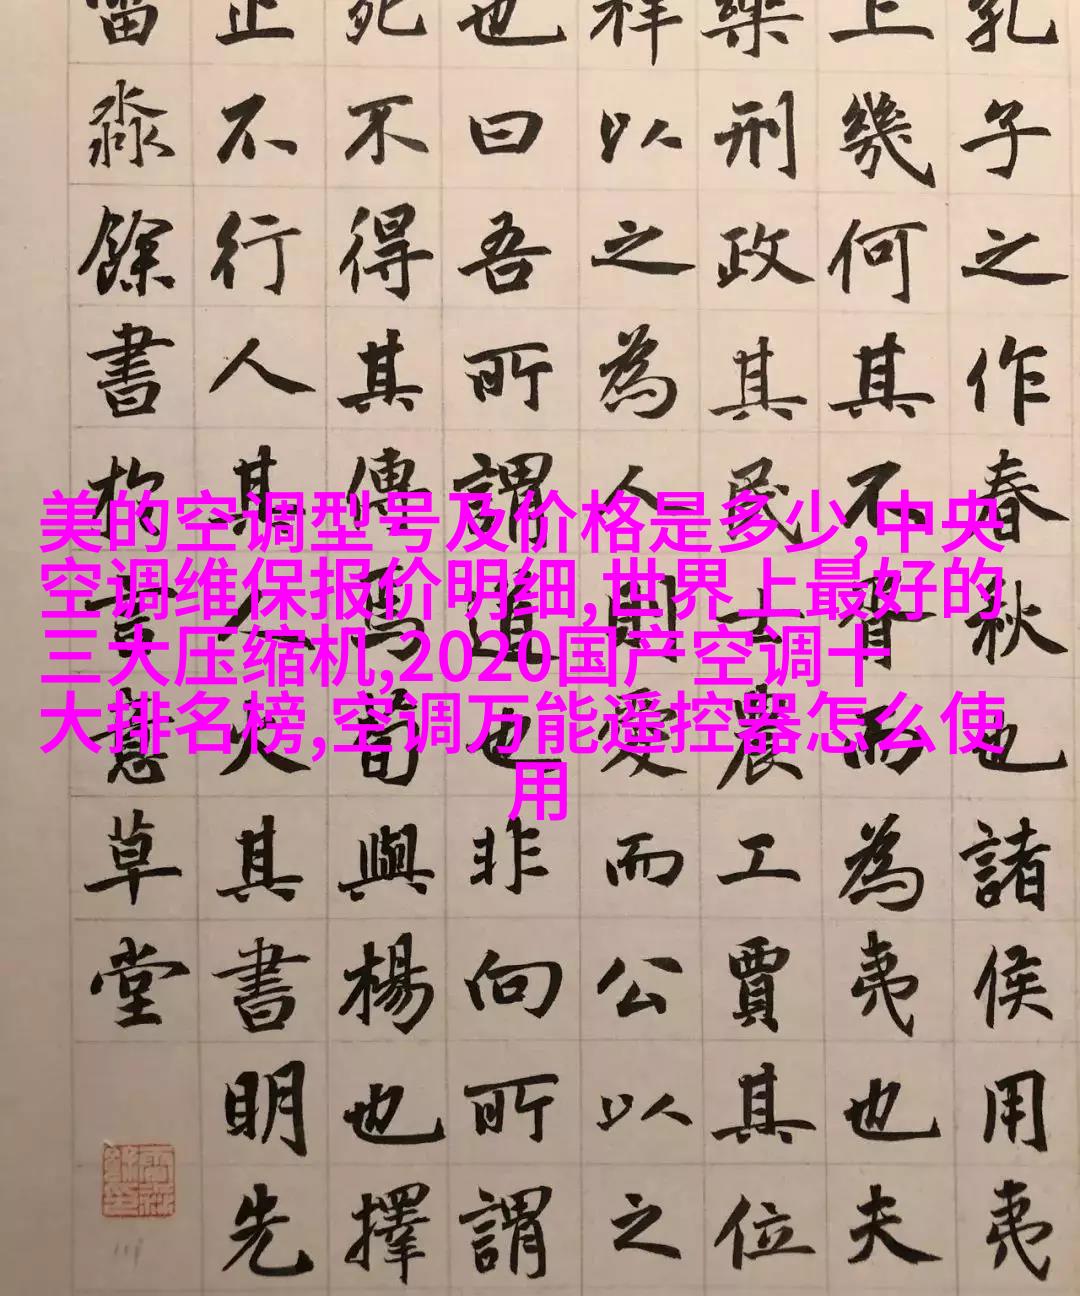 孔子之作春秋也諸侯用夷
上幾何其不胥而為夷也夫
樂刑政其民士農工賈其位
祥以之為人則愛而公以之
也曰吾所謂道也非向所謂
死不得其傳焉荀與楊也擇
止不行人其人火其書明先
淼餘書於意草堂
美的空调型号及价格是多少,中央
空调维保报价明细,世界上最好的
三大压缩机,2020国产空调十
大排名榜,空调万能遥控器怎么使
用